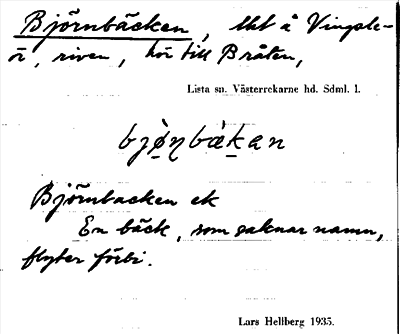 Björnbäcken, lht å Vingsle-
ör, riven, hör till Bråten,
Lista sn. Västerrekarne hd. Sdml. l.
bjö̀ṇbæ̀kan
Björnbacken ek
En bäck, som saknar namn,
flyter förbi.
Lars Hellberg 1935.